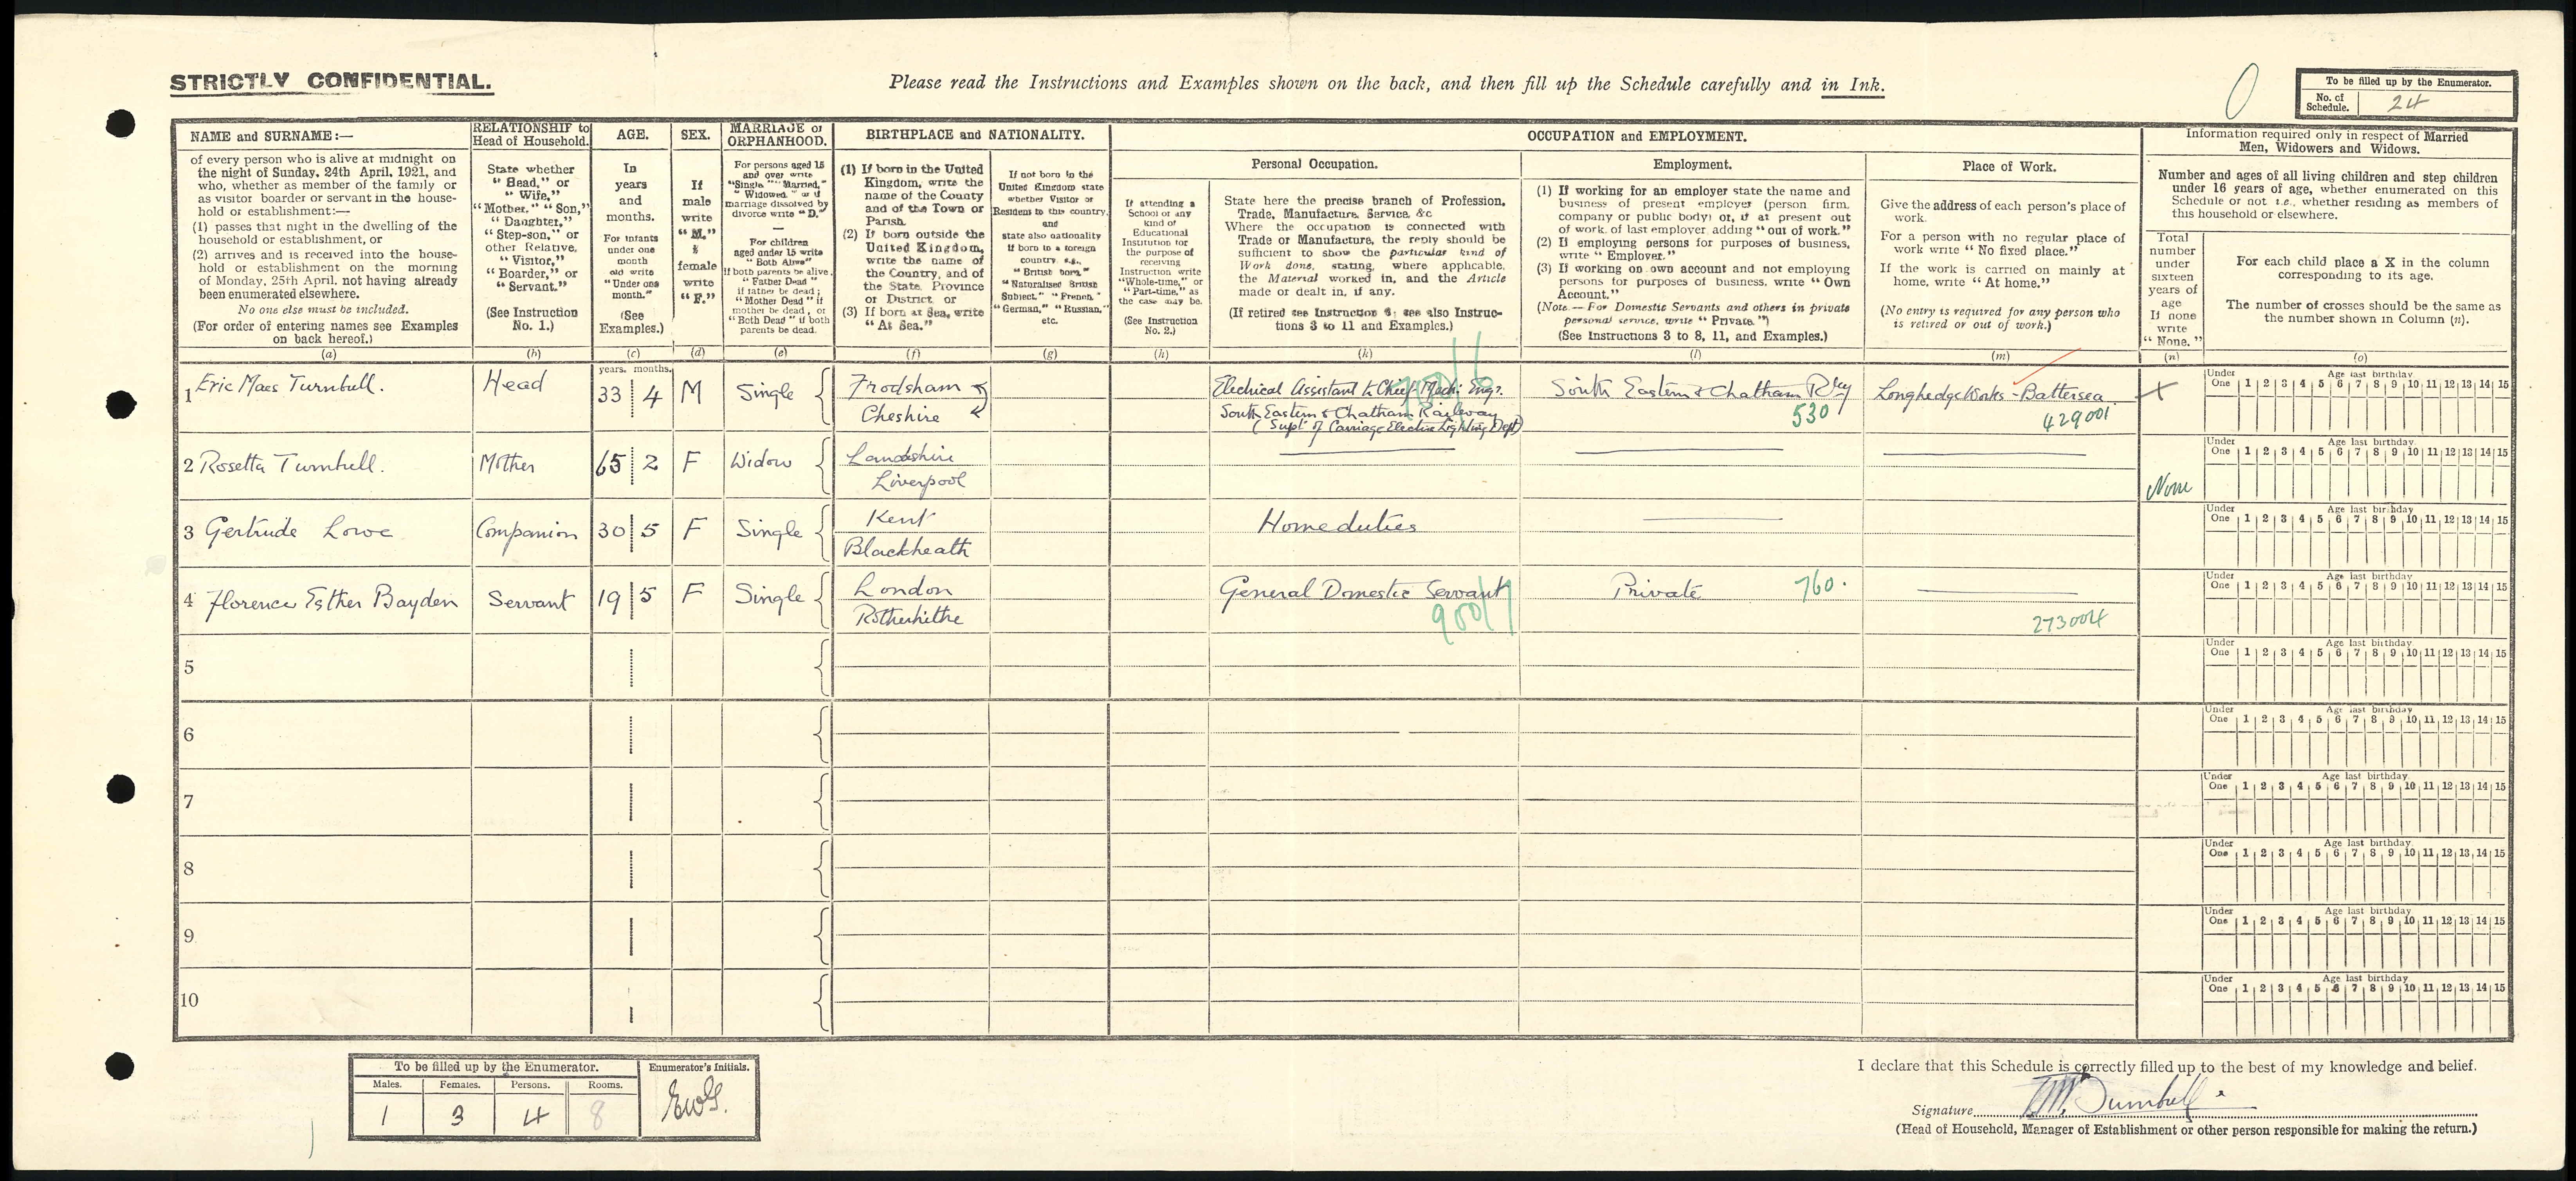 STRICTLY CONFIDENTIAL.
Please read the Instructions and Examples shown on the back, and then fill up the Schedule carefully and in Ink.
To be filled up by the Enumerator.
No. of Schedule. 24
NAME and SURNAME:—
of every person who is alive at midnight on
the night of Sunday, 24th April, 1921, and
who, whether as member of the family or
as visitor boarder or servant in the house-
hold or establishment:—
(1) passes that night in the dwelling of the
household or establishment, or
(2) arrives and is received into the house-
hold or establishment on the morning
of Monday, 25th April, not having already
been enumerated elsewhere.
No one else must be included.
(For order of entering names see Examples
on back hereof.)
(a)
RELATIONSHIP to
Head of Household.
State whether
"Head," or
"Wife,"
"Mother," "Son,"
"Daughter,"
"Step-son," or
other Relative,
"Visitor,"
"Boarder," or
"Servant."
(See Instruction
No. 1.)
(b)
AGE.
In
years
and
months.
For infants
under one
month
old write
"Under one
month."
(See
Examples.)
(c)
SEX.
If
male
write
"M."
&
female
write
"F."
(d)
MARRIAGE or
ORPHANHOOD.
For persons aged 15
and over write
"Single," "Married,"
"Widowed," or if
marriage dissolved by
divorce write "D."
—
For children
aged under 15 write
"Both Alive"
if both parents be alive,
"Father Dead"
if father be dead;
"Mother Dead" if
mother be dead, or
"Both Dead" if both
parents be dead.
(e)
BIRTHPLACE and NATIONALITY.
(1) If born in the United
Kingdom, write the
name of the County
and of the Town or
Parish.
(2) If born outside the
United Kingdom,
write the name of
the Country, and of
the State, Province
or District, or
(3) If born at Sea, write
"At Sea."
(f)
If not born in the
United Kingdom state
whether Visitor or
Resident to this country,
and
state also nationality
if born in a foreign
country e.g.,
"British born"
"Naturalised British
Subject," "French,"
"German," "Russian,"
etc.
(g)
OCCUPATION and EMPLOYMENT.
Personal Occupation.
If attending a
School or any
kind of
Educational
Institution for
the purpose of
receiving
Instruction write
"Whole-time," or
"Part-time," as
the case may be.
(See Instruction
No. 2.)
(h)
State here the precise branch of Profession,
Trade, Manufacture, Service, &c
Where the occupation is connected with
Trade or Manufacture, the reply should be
sufficient to show the particular kind of
Work done, stating, where applicable,
the Material worked in, and the Article
made or dealt in, if any.
(If retired see Instruction 9; see also Instruc-
tions 3 to 11 and Examples.)
(k)
Employment.
(1) If working for an employer state the name and
business of present employer (person firm,
company or public body) or, if at present out
of work, of last employer, adding "out of work."
(2) If employing persons for purposes of business,
write "Employer."
(3) If working on own account and not employing
persons for purposes of business, write "Own
Account."
(Note.—For Domestic Servants and others in private
personal service, write "Private.")
(See Instructions 3 to 8, 11, and Examples.)
(l)
Place of Work.
Give the address of each person's place of
work.
For a person with no regular place of
work write "No fixed place."
If the work is carried on mainly at
home, write "At home."
(No entry is required for any person who
is retired or out of work.)
(m)
Information required only in respect of Married
Men, Widowers and Widows.
Number and ages of all living children and step children
under 16 years of age, whether enumerated on this
Schedule or not i.e., whether residing as members of
this household or elsewhere.
Total
number
under
sixteen
years of
age
If none
write
"None."
(n)
For each child place a X in the column
corresponding to its age.
The number of crosses should be the same as
the number shown in Column (n).
(o)
years. months.
1 Eric Maes Turnbull. Head 33 4 M Single Frodsham
Cheshire
Electrical Assistant to Chief Mech: Engr.
South Eastern & Chatham Railway
(Supt of Carriage Electric Lighting Dept)
South Eastern & Chatham Rly 530
Longhedge Works - Battersea
429001
2 Rosetta Turnbull. Mother 65 2 F Widow Lancashire
Liverpool
None
3 Gertrude Lowe Companion 30 5 F Single Kent
Blackheath
Home duties
4 Florence Esther Bayden Servant 19 5 F Single London
Rotherhithe
General Domestic Servant Private 760.
900/7
273004
5
6
7
8
9
10
Under One Age last birthday. 1 2 3 4 5 6 7 8 9 10 11 12 13 14 15
Under One Age last birthday. 1 2 3 4 5 6 7 8 9 10 11 12 13 14 15
Under One Age last birthday. 1 2 3 4 5 6 7 8 9 10 11 12 13 14 15
Under One Age last birthday. 1 2 3 4 5 6 7 8 9 10 11 12 13 14 15
Under One Age last birthday. 1 2 3 4 5 6 7 8 9 10 11 12 13 14 15
Under One Age last birthday. 1 2 3 4 5 6 7 8 9 10 11 12 13 14 15
Under One Age last birthday. 1 2 3 4 5 6 7 8 9 10 11 12 13 14 15
Under One Age last birthday. 1 2 3 4 5 6 7 8 9 10 11 12 13 14 15
Under One Age last birthday. 1 2 3 4 5 6 7 8 9 10 11 12 13 14 15
Under One Age last birthday. 1 2 3 4 5 6 7 8 9 10 11 12 13 14 15
To be filled up by the Enumerator.
Males. Females. Persons. Rooms.
1 3 4 8
Enumerator's Initials.
EWG.
I declare that this Schedule is correctly filled up to the best of my knowledge and belief.
Signature EM Turnbull
(Head of Household, Manager of Establishment or other person responsible for making the return.)